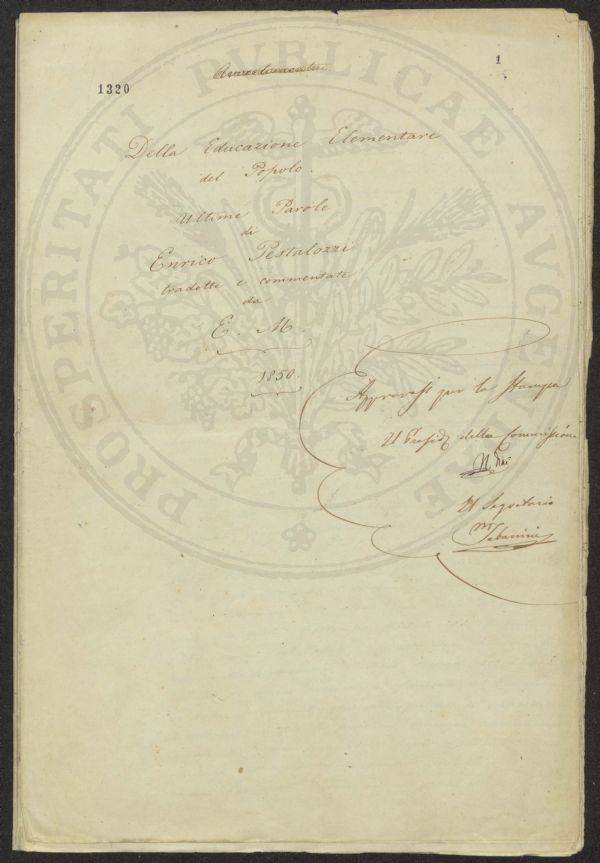 1
1320
Della Educazione Elementare
del Popolo.
Ultime Parole
di
Enrico Pestalozzi
tradotte e commentate
da
E. M.
1850.
Approvasi per la Stampa
Il Presid della Commissione
Il Segretario
PROSPERITATI PVBLICAE AVGENDAE